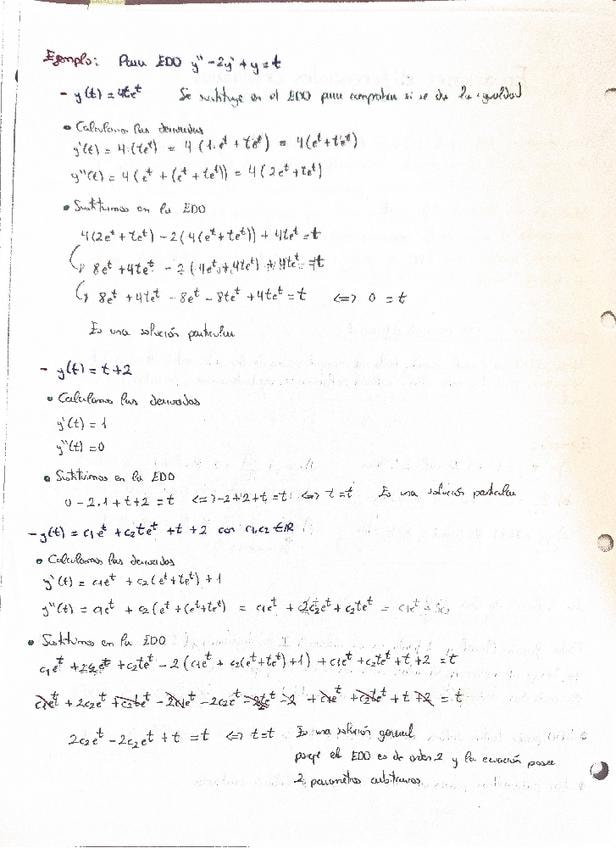 Ejemplo: Para EDO y'' - 2y' + y = t
- y(t) = 4te^t Se sustituye en el EDO para comprobar si se da la igualdad
• Calculamos las derivadas
y'(t) = 4·(te^t)' = 4(1·e^t + te^t) = 4(e^t + te^t)
y''(t) = 4(e^t + (e^t + te^t)) = 4(2e^t + te^t)
• Sustituimos en la EDO
4(2e^t + te^t) - 2(4(e^t + te^t)) + 4te^t = t
8e^t + 4te^t - 2(4e^t + 4te^t) + 4te^t = t
8e^t + 4te^t - 8e^t - 8te^t + 4te^t = t <=> 0 = t
Es una solución particular
- y(t) = t + 2
• Calculamos las derivadas
y'(t) = 1
y''(t) = 0
• Sustituimos en la EDO
0 - 2·1 + t + 2 = t <=> -2 + 2 + t = t <=> t = t Es una solución particular
- y(t) = c1e^t + c2te^t + t + 2 con c1,c2 ∈ IR
• Calculamos las derivadas
y'(t) = c1e^t + c2(e^t + te^t) + 1
y''(t) = c1e^t + c2(e^t + (e^t + te^t) = c1e^t + 2c2e^t + c2te^t =
• Sustituimos en la EDO
c1e^t + 2c2e^t + c2te^t - 2(c1e^t + c2(e^t + te^t) + 1) + c1e^t + c2te^t + t + 2 = t
c1e^t + 2c2e^t + c2te^t - 2c1e^t - 2c2e^t - 2te^t - 2 + c1e^t + c2te^t + t + 2 = t
2c2e^t - 2c2e^t + t = t <=> t = t Es una solución general
porque el EDO es de orden 2 y la ecuación posee
2 parámetros arbitrarios.